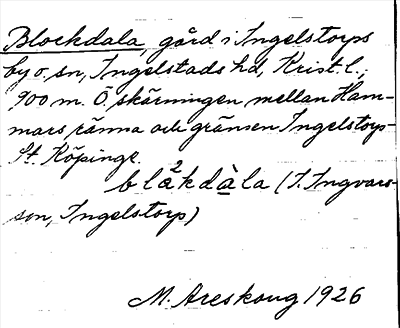 Blockdala, gård i Ingelstorps
by o. sn, Ingelstads hd, Krist. l.,
900 m. Ö. skärningen mellan Ham-
mars ränna och gränsen Ingelstorp-
St. Köpinge.
blå²kdàla (I. Ingvars-
son, Ingelstorp)
M. Areskoug 1926